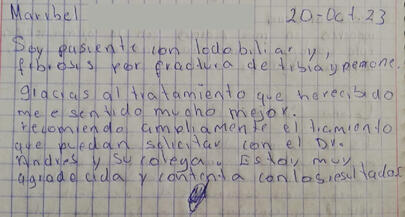 Maribel 20-Oct.23
Soy pasiente con lodobiliar y,
fibrosis por fractura de tibia y perone.
gracias al tratamiento que herecibido
me e sentido mucho mejor.
recomiendo ampliamente el tramiento
que puedan solicitar con el Dr.
Andres y su colega. Estoy muy
agradecida y contenta con los resultados